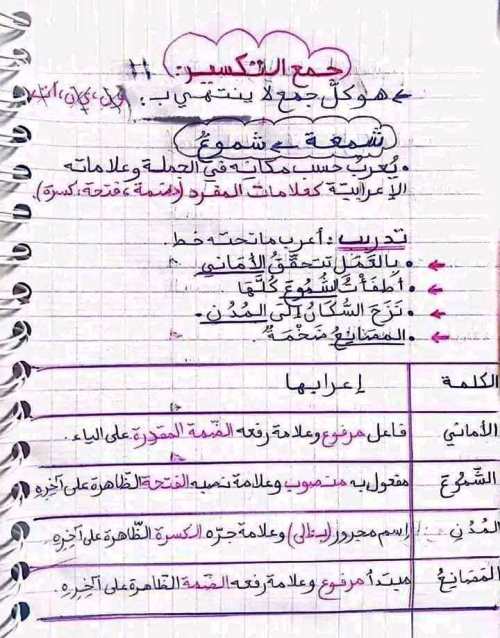 جمع التكسير:
هو كلّ جمع لا ينتهي بـ: (ون، ين، ات)
شمعة ← شموعٌ
• يُعربُ حسب مكانه في الجملة وعلاماته
الإعرابيّة كعلامات المفرد (ضمة، فتحة، كسرة).
تدريب: أعرب ما تحته خط.
• بِالعَمَلِ تتحقّقُ الأماني
• أطفأتُ الشّموعَ كُلَّها
• نَزَحَ السُّكانُ إلى المُدُن.
• المصَانِعُ ضَخْمَةٌ.
الكلمة إعرابها
الأماني فاعل مرفوع وعلامة رفعه الضّمة المقدرة على الياء.
الشّمُوعَ مفعول به منصوب وعلامة نصبه الفتحة الظّاهرة على آخِرِهِ
المُدُنِ إسم مجرور (بـإلى) وعلامة جرّه الكسرة الظّاهرة على آخِرِهِ.
المَصَانِعُ مبتدأ مرفوع وعلامة رفعه الضّمة الظاهرة على آخِرِهِ.